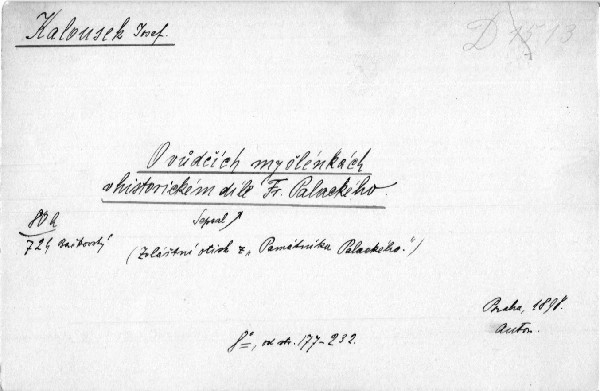 Kalousek Josef.
D 1513
O vůdčích myšlénkách
v historickém díle Fr. Palackého
Sepsal
80 h
724 Bačkovský
(Zvláštní otisk z „Památníka Palackého.“)
Praha, 1898.
Autor.
8°, od str. 177-232.